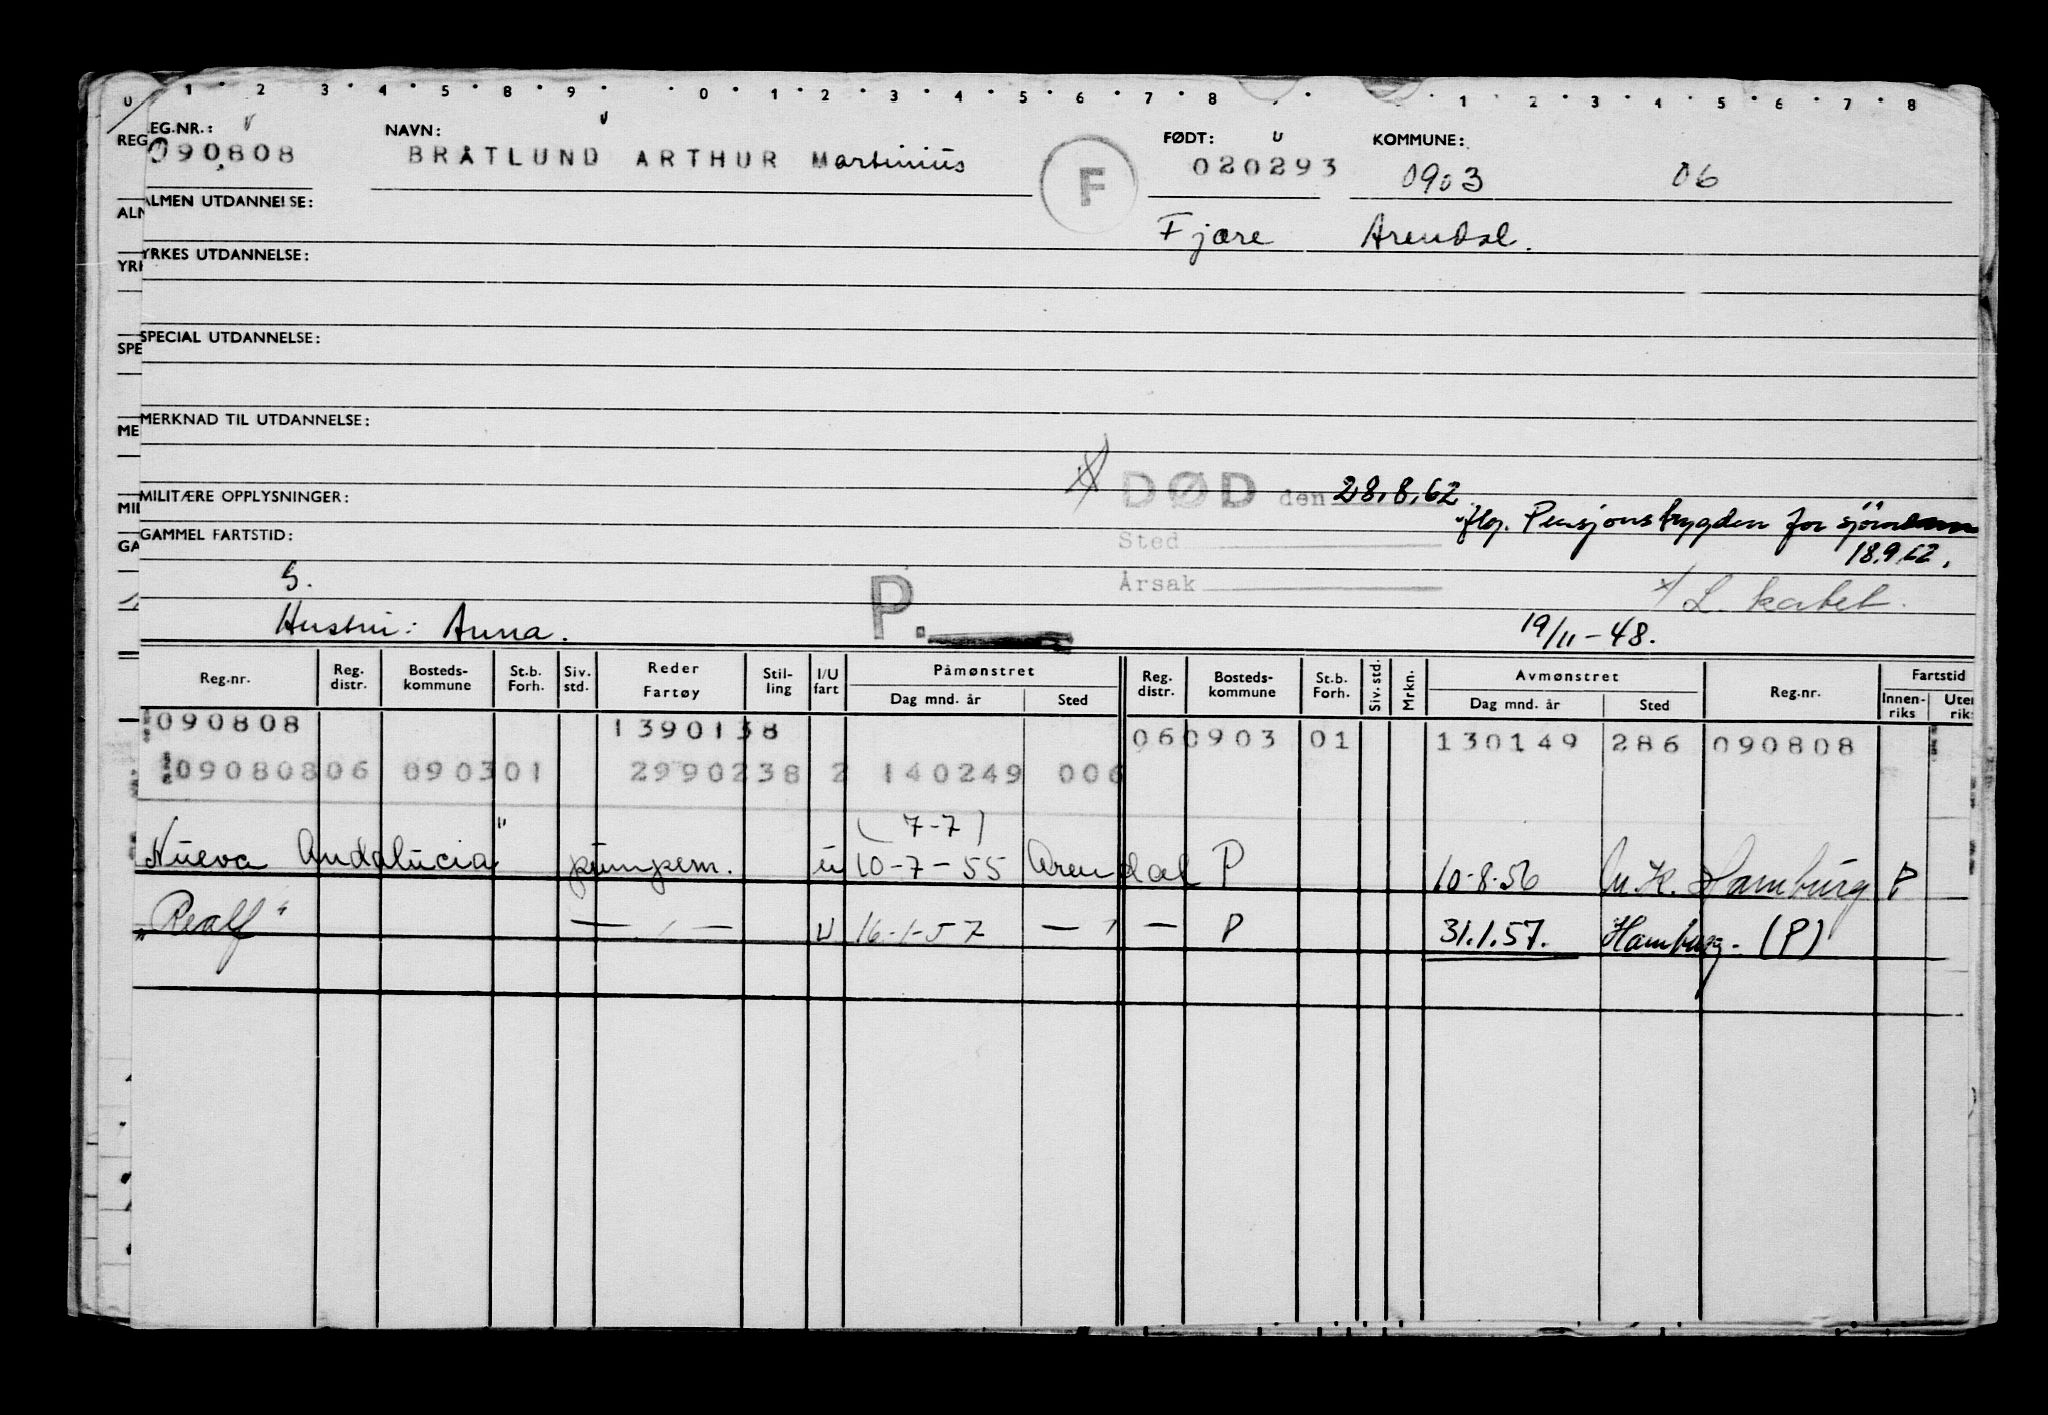 U 1 2 3 4 5 8 9 0 1 2 3 4 5 6 7 8 1 2 3 4 5 6 7 8
REG EG.NR.: NAVN: FØDT: KOMMUNE:
090808 BRÅTLUND ARTHUR Martinius F 020293 0903 06
ALN ALMEN UTDANNELSE:
Fjære Arendal.
YRK YRKES UTDANNELSE:
SPE SPECIAL UTDANNELSE:
ME MERKNAD TIL UTDANNELSE:
DØD den 28.8.62
MIL MILITÆRE OPPLYSNINGER:
iflg. Pensjonstrygden for sjömenn
GA GAMMEL FARTSTID:
Sted
18.9.62.
S.
Årsak
P.
x/ L. kabel.
Hustru: Anna.
19/11-48.
Reg.nr. Reg. distr. Bosteds-kommune St.b. Forh. Siv. std. Reder Fartøy Stil-ling I/U fart Påmønstret Dag mnd. år Sted Reg. distr. Bosteds-kommune St.b. Forh. Siv. std. Mrkn. Avmønstret Dag mnd. år Sted Reg.nr. Fartstid Innen-riks Uten rik
090808 1390138 060903 01 130149 286 090808
09080806 090301 2990238 2 140249 006
(7-7)
Nueva Andalucia" pumpem. u 10-7-55 Arendal P 10-8-56 Hamburg P
"Realf" — " — U 16-1-57 — " — P 31.1.57. Hamburg. (P)